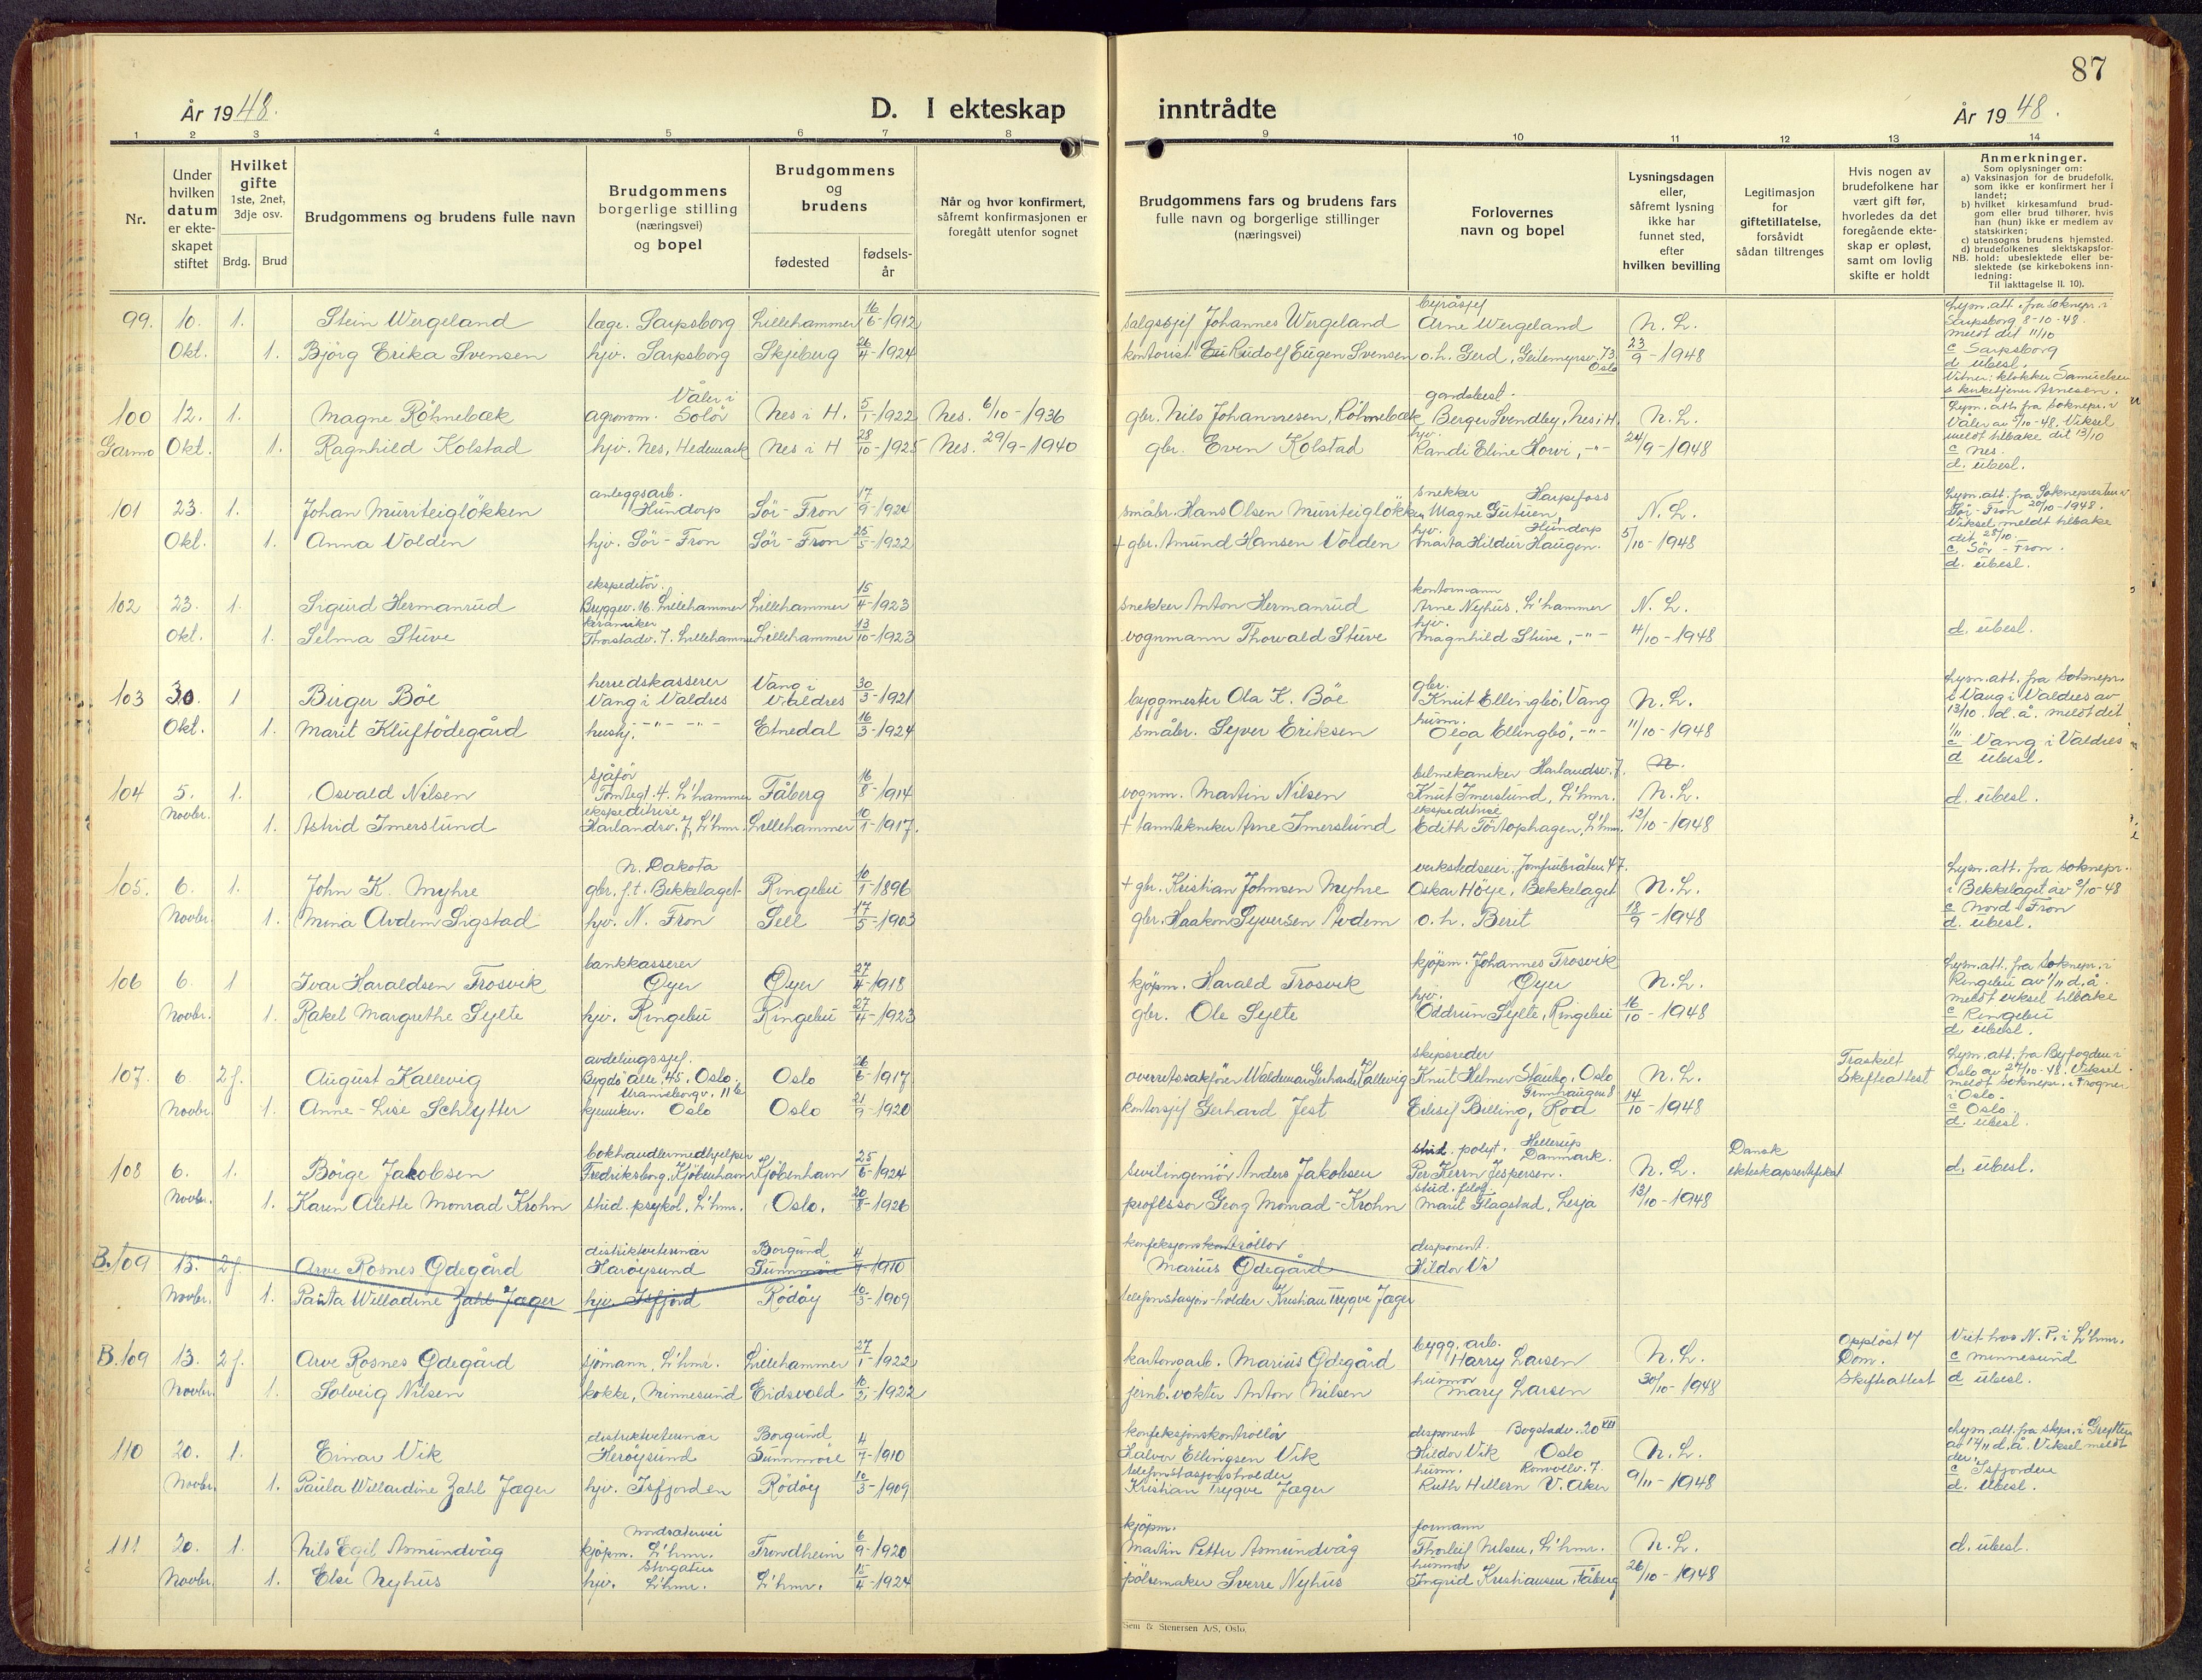 87
År 1948.
D. I ekteskap inntrådte
År 1948.
1 2 3 4 5 6 7 8 9 10 11 12 13 14
Nr.
Under hvilken datum er ekteskapet stiftet
Hvilket gifte 1ste, 2net, 3dje osv.
Brdg. Brud
Brudgommens og brudens fulle navn
Brudgommens borgerlige stilling (næringsvei) og bopel
Brudgommens og brudens
fødested
fødselsår
Når og hvor konfirmert, såfremt konfirmasjonen er foregått utenfor sognet
Brudgommens fars og brudens fars fulle navn og borgerlige stillinger (næringsvei)
Forlovernes navn og bopel
Lysningsdagen eller, såfremt lysning ikke har funnet sted, efter hvilken bevilling
Legitimasjon for giftetillatelse, forsåvidt sådan tiltrenges
Hvis nogen av brudefolkene har vært gift før, hvorledes da det foregående ekteskap er opløst, samt om lovlig skifte er holdt
Anmerkninger.
Som oplysninger om:
a) Vaksinasjon for de brudefolk, som ikke er konfirmert her i landet;
b) hvilket kirkesamfund brudgom eller brud tilhører, hvis han (hun) ikke er medlem av statskirken;
c) utensogns brudens hjemsted.
d) brudefolkenes slektskapsforhold: ubeslektede eller beslektede (se kirkebokens innledning:
NB.
Til iakttagelse II. 10).
99. 10. 1. Stein Wergeland læge. Sarpsborg Lillehammer 16/6-1912 salgssjef Johannes Wergeland byråsjef Arne Wergeland N. L.
Okt. 1. Bjørg Erika Svensen hjv. Sarpsborg Skjeberg 26/4-1924 kontorist Rudolf Eugen Svensen o.h. Gerd, Geitemyrsv. 73 Oslo 23/9-1948
Lysn. att. fra soknepr. i Sarpsborg 8-10-48. meldt dit 11/10
c Sarpsborg
d. ubesl.
Vitner: klokker Samuelsen & kirketjener Arnesen.
100 12. 1. Magne Röhnebæk agronom. Våler i Solör Nes i H. 5/1-1922 Nes. 6/10-1936 gbr. Nils Johannesen Röhnebæk gardsbest. Berger Svendby, Nes i H. N. L.
Garmo Okt. 1. Ragnhild Kolstad hjv. Nes, Hedemark Nes i H 28/10-1925 Nes. 29/9-1940 gbr. Even Kolstad hjv. Randi Eline Horve, -"- 24/9-1948
Lysn. att. fra Soknepr. i Våler av 5/10-48. Viksel meldt tilbake dit 13/10
c Nes.
d. ubesl.
101 23. 1. Johan Murrteiglökken anleggsarb. Hundorp Sör-Fron 17/9-1924 småbr. Hans Olsen Murrteiglökken snekker Harpefoss Magne Gutuen, N. L.
Okt. 1. Anna Volden hjv. Sör-Fron Sör-Fron 25/5-1922 + gbr. Amund Hansen Volden hjv. Hundorp Marta Hildur Haugen. 5/10-1948
Lysn. att. fra Soknepresten i Sör-Fron 20/10-1948. Viksel meldt tilbake dit 25/10.
c. Sör-Fron.
d. ubesl.
102 23. 1. Sigurd Hermanrud ekspeditör. Bryggev. 16. Lillehammer Lillehammer 15/4-1923 snekker Anton Hermanrud kontormann Arne Nyhus, L'hammer N. L.
Okt. 1. Selma Stuve keramiker Thorstadv. 7. Lillehammer Lillehammer 13/10-1923 vognmann Thorvald Stuve hjv. Magnhild Stuve, -"- 4/10-1948 d. ubesl.
103 30. 1 Birger Böe herredskasserer Vang i Valdres Vang i Valdres 30/3-1921 byggmester Ola K. Böe gbr. Knut Ellingbö, Vang N. L.
Okt. 1. Marit Kluftödegård hushj. -"- -"- Etnedal 16/3-1924 småbr. Syver Eriksen husm. Olga Ellingbö, -"- 11/10-1948
Lysn. att. fra Soknepr. i Vang i Valdres av 13/10. d.å. meldt dit 1/11
c Vang i Valdres
d ubesl.
104 5. 1. Osvald Nilsen sjåför Tomtegt. 4. L'hammer Fåberg 16/8-1914 vognm. Martin Nilsen bilmekaniker Harlandsv. 7. Knut Imerslund, L'hmr. N. L. d. ubesl.
Novbr. 1. Astrid Imerslund ekspeditrise Harlandsv. 7, L'hmr. Lillehammer 10/1-1917. + tanntekniker Arne Imerslund ekspeditrise Edith Törtophagen, L'hmr. 12/10-1948
105. 6. 1. John K. Myhre N. Dakota gbr. f.t. Bekkelaget Ringebu 10/1-1896 + gbr. Kristian Johnsen Myhre verkstedseier, Jomfrubråten 47. Oskar Höye, Bekkelaget N. L.
Novbr. 1. Mina Avdem Sigstad hjv. N. Fron Sell 17/5-1903 gbr. Haakon Syversen Avdem o. h. Berit 18/9-1948
Lysn. att. fra soknepr. i Bekkelaget av 9/10-48
c Nord-Fron
d. ubesl.
106 6. 1 Ivar Haraldsen Trosvik bankkasserer Øyer Øyer 27/4-1918 kjøpm. Harald Trosvik kjöpm. Johannes Trosvik Øyer N. L.
Novbr. 1. Rakel Margrethe Sylte hjv. Ringebu Ringebu 27/4-1923 gbr. Ole Sylte hjv. Oddrun Sylte, Ringebu 16/10-1948
Lysn. att. fra Soknepr. i Ringebu av 1/11 d.å. meldt viksel tilbake
c Ringebu
d. ubesl.
107. 6. 2 f. August Kallevig avdelingssjef. Bygdö alle, 45, Oslo. Oslo 26/6-1917 overrettssakfører Waldemar Gerhard Kallevig skipsreder Knut Helmer Staubo, Oslo N. L. Fraskilt Skifteattest
Novbr. 1. Anne-Lise Schlytter Uranieborgv. 11 b kjemiker. Oslo Oslo 21/9-1920 kontorsjef Gerhard Jest Eilesif Billing, Roa 14/10-1948
Lysn. att. fra Byfogden i Oslo av 27/10-48. Viksel meldt Soknepr. i Frogner i Oslo.
c Oslo.
d. ubesl.
108 6. 1. Börge Jakobsen bokhandlermedhjelper Fredriksberg, Kjöbenhavn Kjöbenhavn 25/6-1924 sivilingeniör Anders Jakobsen stud. polyt. Hellerup Danmark. Per Kerrn Jespersen. N. L. Dansk ekteskapssertifikat d. ubesl.
Novbr. 1. Karen Alette Monrad Krohn stud. psykol, L'hmr. Oslo. 20/8-1926 professor Georg Monrad-Krohn stud. filol. Marit Flagstad, Lesja 13/10-1948
B.109 13. 2 f. Arve Rosnes Ødegård distriktveterinær Herøysund Borgund Sunnmöre 4/7-1910 konfeksjonskontrollör Marius Ødegård disponent. Hildor Vi
Novbr. 1. Paula Willadine Zahl Jæger hjv. Isfjord Rödöy 10/3-1909 telefonstasjon-holder Kristian Trygve Jæger
B.109 13. 2 f. Arve Rosnes Ødegård sjömann, L'hmr. Lillehammer 27/1-1922 kartongarb. Marius Ødegård bygg. arb. Harry Larsen N. L. Oppløst v/ Dom. Skifteattest
Novbr. 1. Solveig Nilsen kokke, Minnesund Eidsvold 10/2-1922 jernb. vokter Anton Nilsen husmor Mary Larsen 30/10-1948
Viet hos N. P. i L'hmr.
c Minnesund
d ubesl.
110 20. 1. Einar Vik distriktveterinær Herøysund Borgund Sunnmöre 4/7-1910 konfeksjonskontrollör Halvor Ellingsen Vik disponent Bogstadv. 20 VII Hildor Vik Oslo N. L.
Novbr. 1. Paula Willardine Zahl Jæger hjv. Isfjorden Rödöy 10/3-1909 telefonstasjonsholder Kristian Trygve Jæger husm. Ruth Hellern V. Aker 9/11-1948
Lysn. att. fra skpr. i Grytten av 17/11 d.å. Viksel meldt der.
c Isfjorden
d. ubesl.
111 20. 1. Nils Egil Asmundvåg Nordseterveien kjöpm. L'hmr. Trondheim 6/9-1920 kjöpm. Martin Petter Asmundvåg formann Thorleif Nilsen, L'hmr. N. L. d. ubesl.
Novbr. 1. Else Nyhus Storgaten hjv. L'hmr. L'hmr. 15/4-1924 pölsemaker Sverre Nyhus husmor Ingrid Kristiansen, Fåberg 26/10-1948
Sem & Stenersen A/S, Oslo.